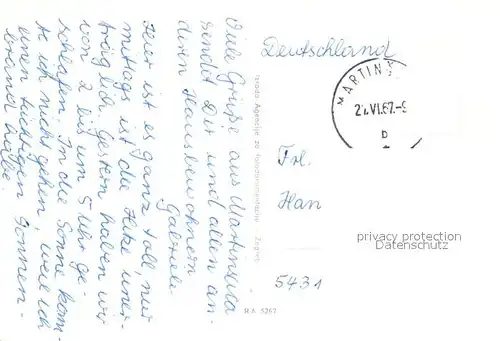 Viele Grüße aus Martinšcica
sendet Dir und allen an-
deren Hausbewohnern
Gabriele
Hier ist es ganz toll, nur
mittags ist die Hitze uner-
träglich. Gestern haben wir
von 2 bis um 5 Uhr ge-
schlafen. In die Sonne kann-
te ich nicht gehen, weil ich
einen tüchtigen Sonnen-
brand habe.
Agencija za fotodokumentaciju Zagreb
RA 5267
Deutschland
MARTIN
VI.67-9
b
Frl.
Han
5431
privacy protection
Datenschutz